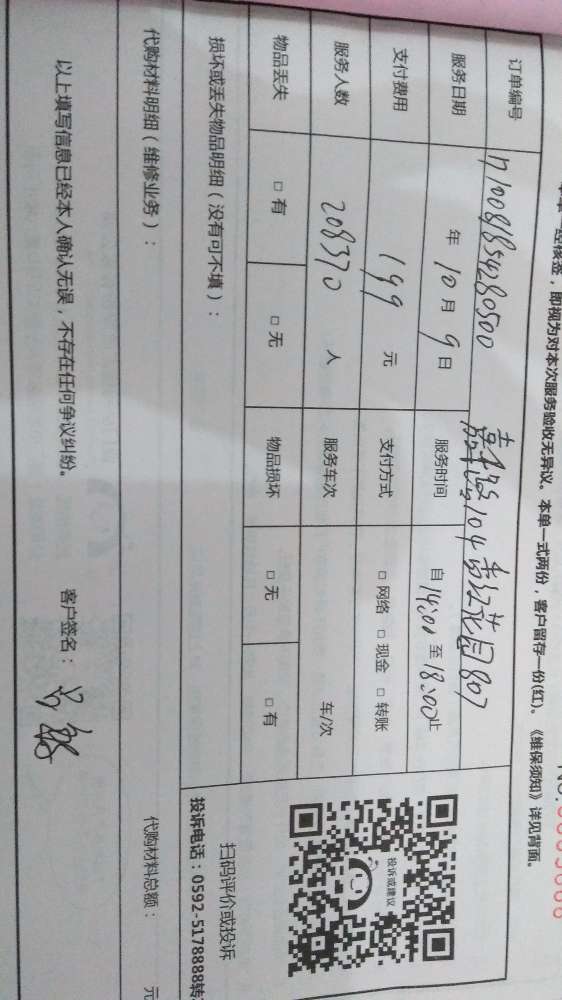 即视为对本次服务验收无异议。本单一式两份，客户留存一份(红)。《维保须知》详见背面。
订单编号 17100818854280500
服务日期 年 10 月 9 日 服务时间 自 14:00 至 18:00 止
支付费用 199 元 支付方式 □ 网络 □ 现金 □ 转账
服务人数 208370 人 服务车次 车/次
物品丢失 □ 有 □ 无 物品损坏 □ 无 □ 有
损坏或丢失物品明细（没有可不填）：
代购材料明细（维修业务）： 代购材料总额： 元
以上填写信息已经本人确认无误，不存在任何争议纠纷。 客户签名：
投诉或建议
扫码评价或投诉
投诉电话：0592-5178888转